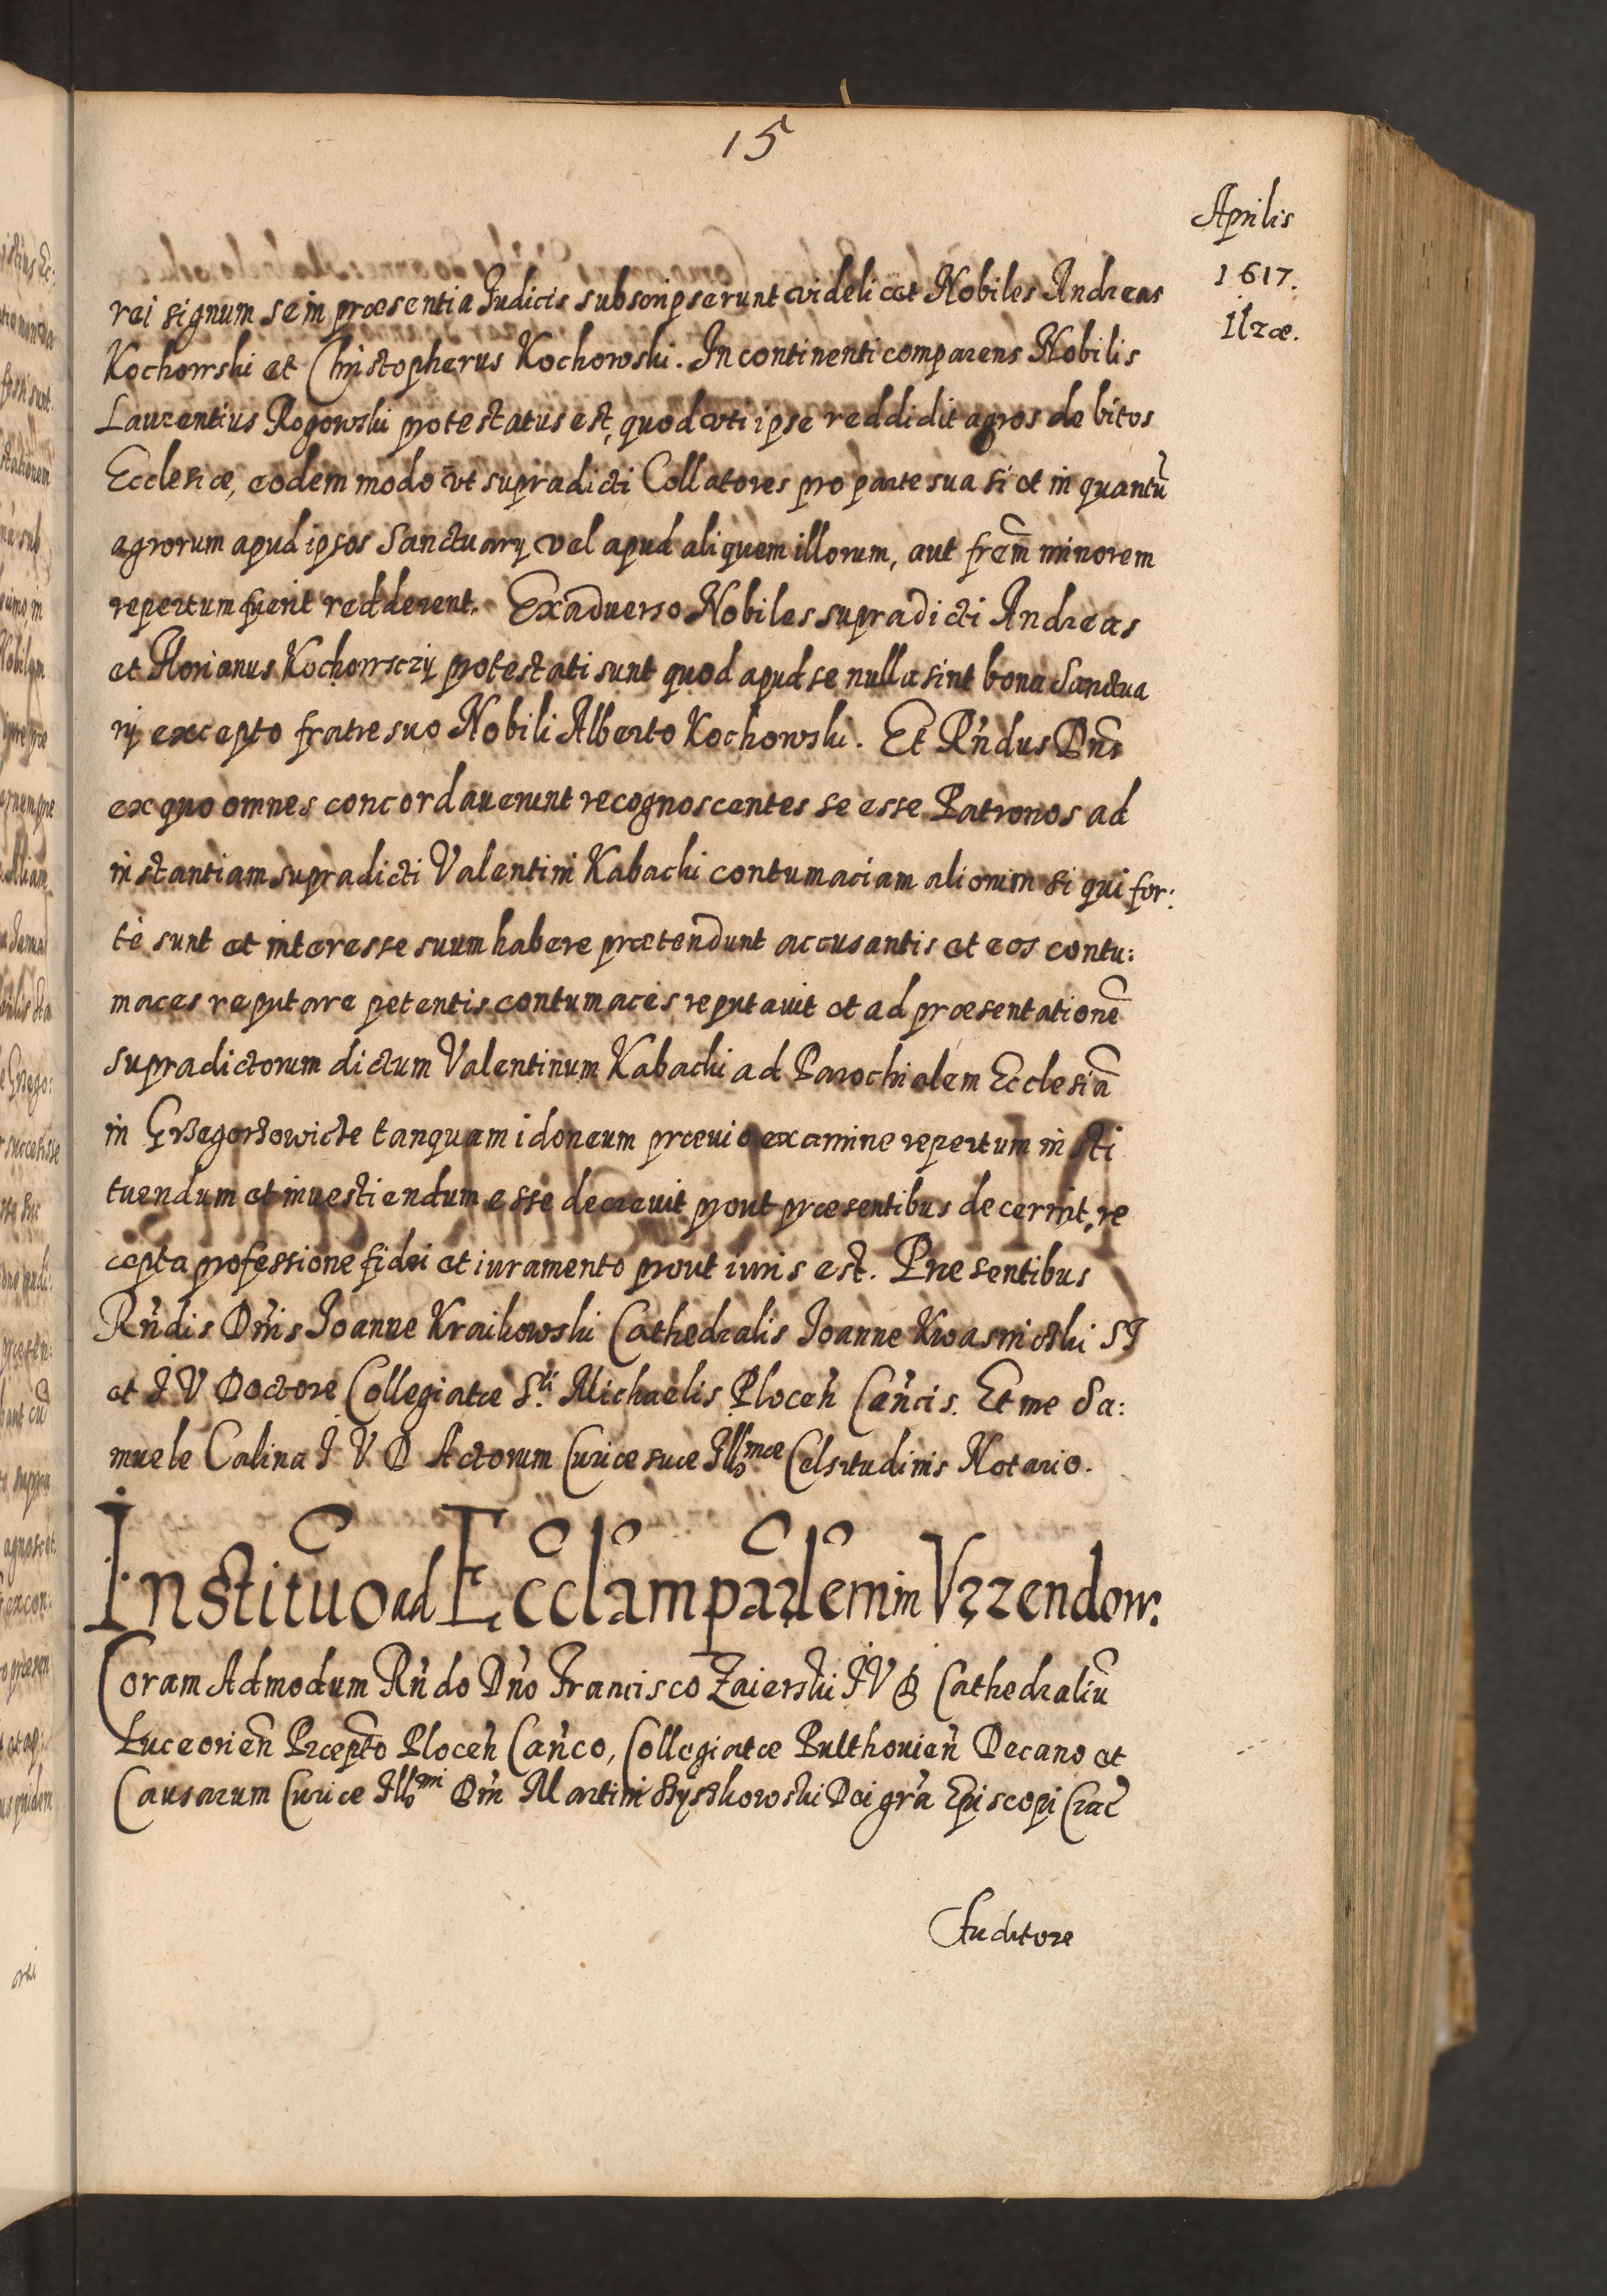 15
Aprilis
1617.
Ilzæ.
rei signum se in præsentia Judicis subscripserunt videlicet Nobiles Andreas
Kochowski et Christopherus Kochowski. In continenti comparens Nobilis
Laurentius Rogowski protestatus est, quod uti ipse reddidit agros debitos
Ecclesiæ, eodem modo ut supradicti Collatores pro parte sua si et in quantũ
agrorum apud ipsos Sanctuarij vel apud aliquem illorum, aut frẽm minorem
repertum fuerit redderent. Ex adverso Nobiles supradicti Andreas
et Florianus Kochowsczÿ protestati sunt quod apud se nulla sint bona Sanctua
rij excepto fratre suo Nobili Alberto Kochowski. Et Rñdus Dñs
ex quo omnes concordauerunt recognoscentes se esse Patronos ad
instantiam supradicti Valentini Kabachi contumaciam aliorum si qui for:
tè sunt et interesse suum habere prætendunt accusantis et eos contu:
maces reputare petentis contumaces reputauit et ad præsentationẽ
supradictorum dictum Valentinum Kabachi ad Parochialem Ecclesiã
in Grzegorzowicze tanquam idoneum præuio examine repertum insti
tuendum et inuestiendum esse decreuit prout præsentibus decernit, re
cepta professione fidei et iuramento prout iuris est. Præsentibus
Rñdis Dñis Joanne Kraikowski Cathedralis Joanne Kwasniczki ST
et J V Doctore Collegiatæ S.ti Michaelis Ploceñ Cañcis. Et me Sa:
muele Calina J V D Actorum Curiæ suæ Illmæ Celsitudinis Notario.
Institutio ad Ecclãm parlẽm in Vrzendow.
Coram Admodum Rñdo Dño Francisco Zaierski J V D Cathedraliũ
Luceorieñ Præpto Ploceñ Cañco, Collegiatæ Pulthouieñ Decano et
Causarum Curiæ Illmi Dñi Martini Szyszkowski Dei grã Episcopi Crac̃
Auditore